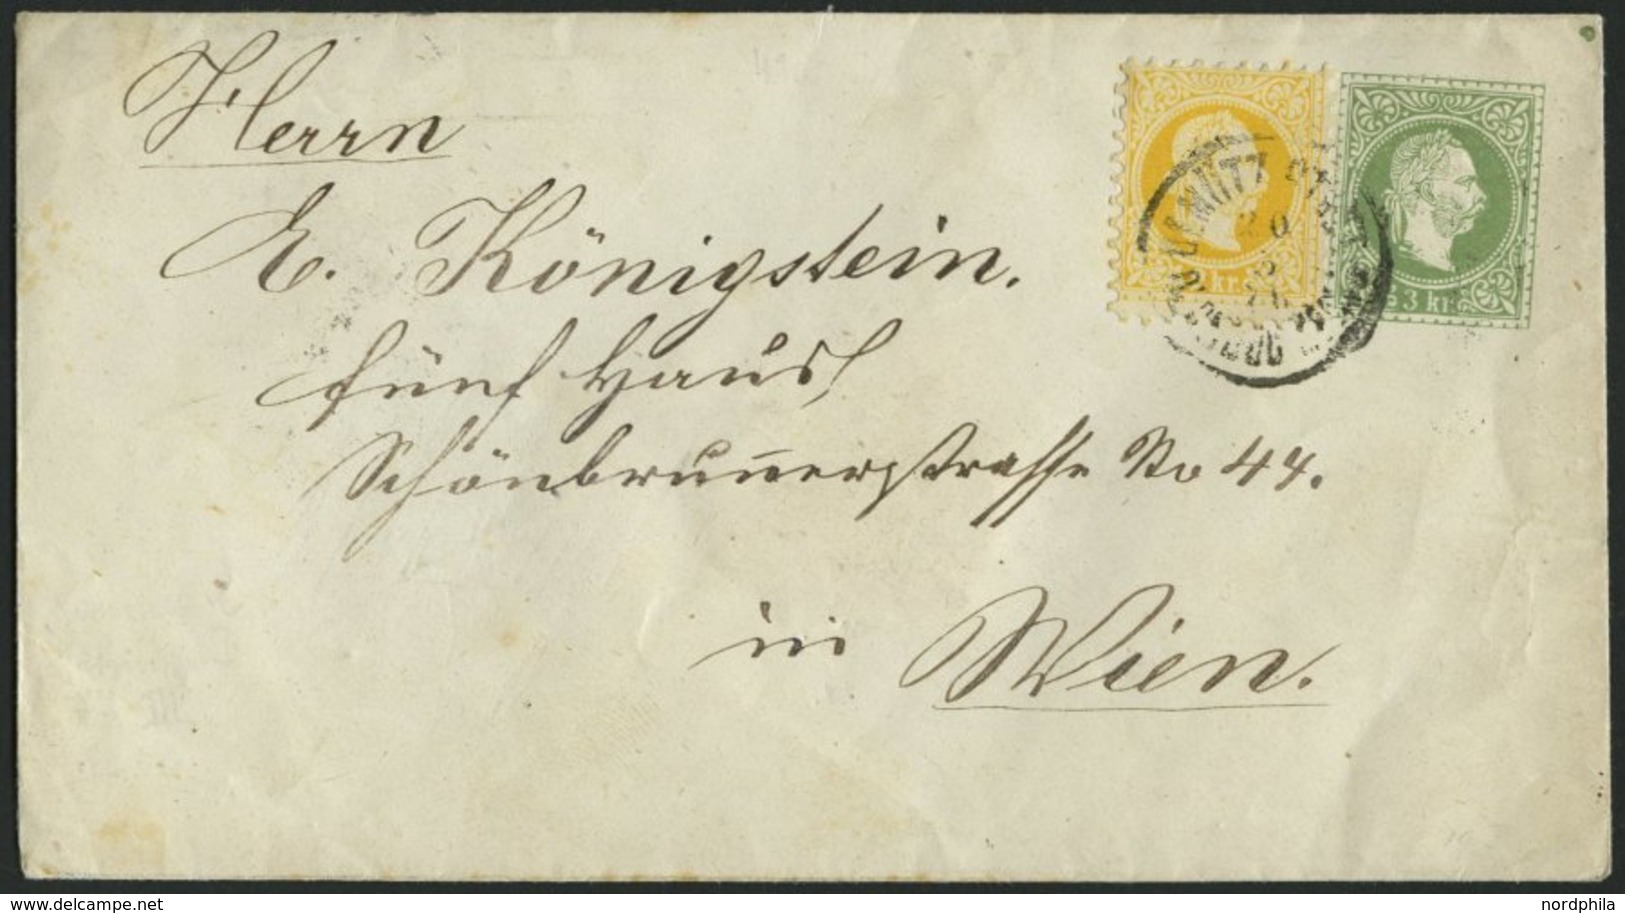 Herrn
A. Königstein.
fünfhaus,
Schönbrunnerstrasse No 44.
in Wien.
kr.
3 kr.
OLMÜTZ
20
delcampe.net
nordphila